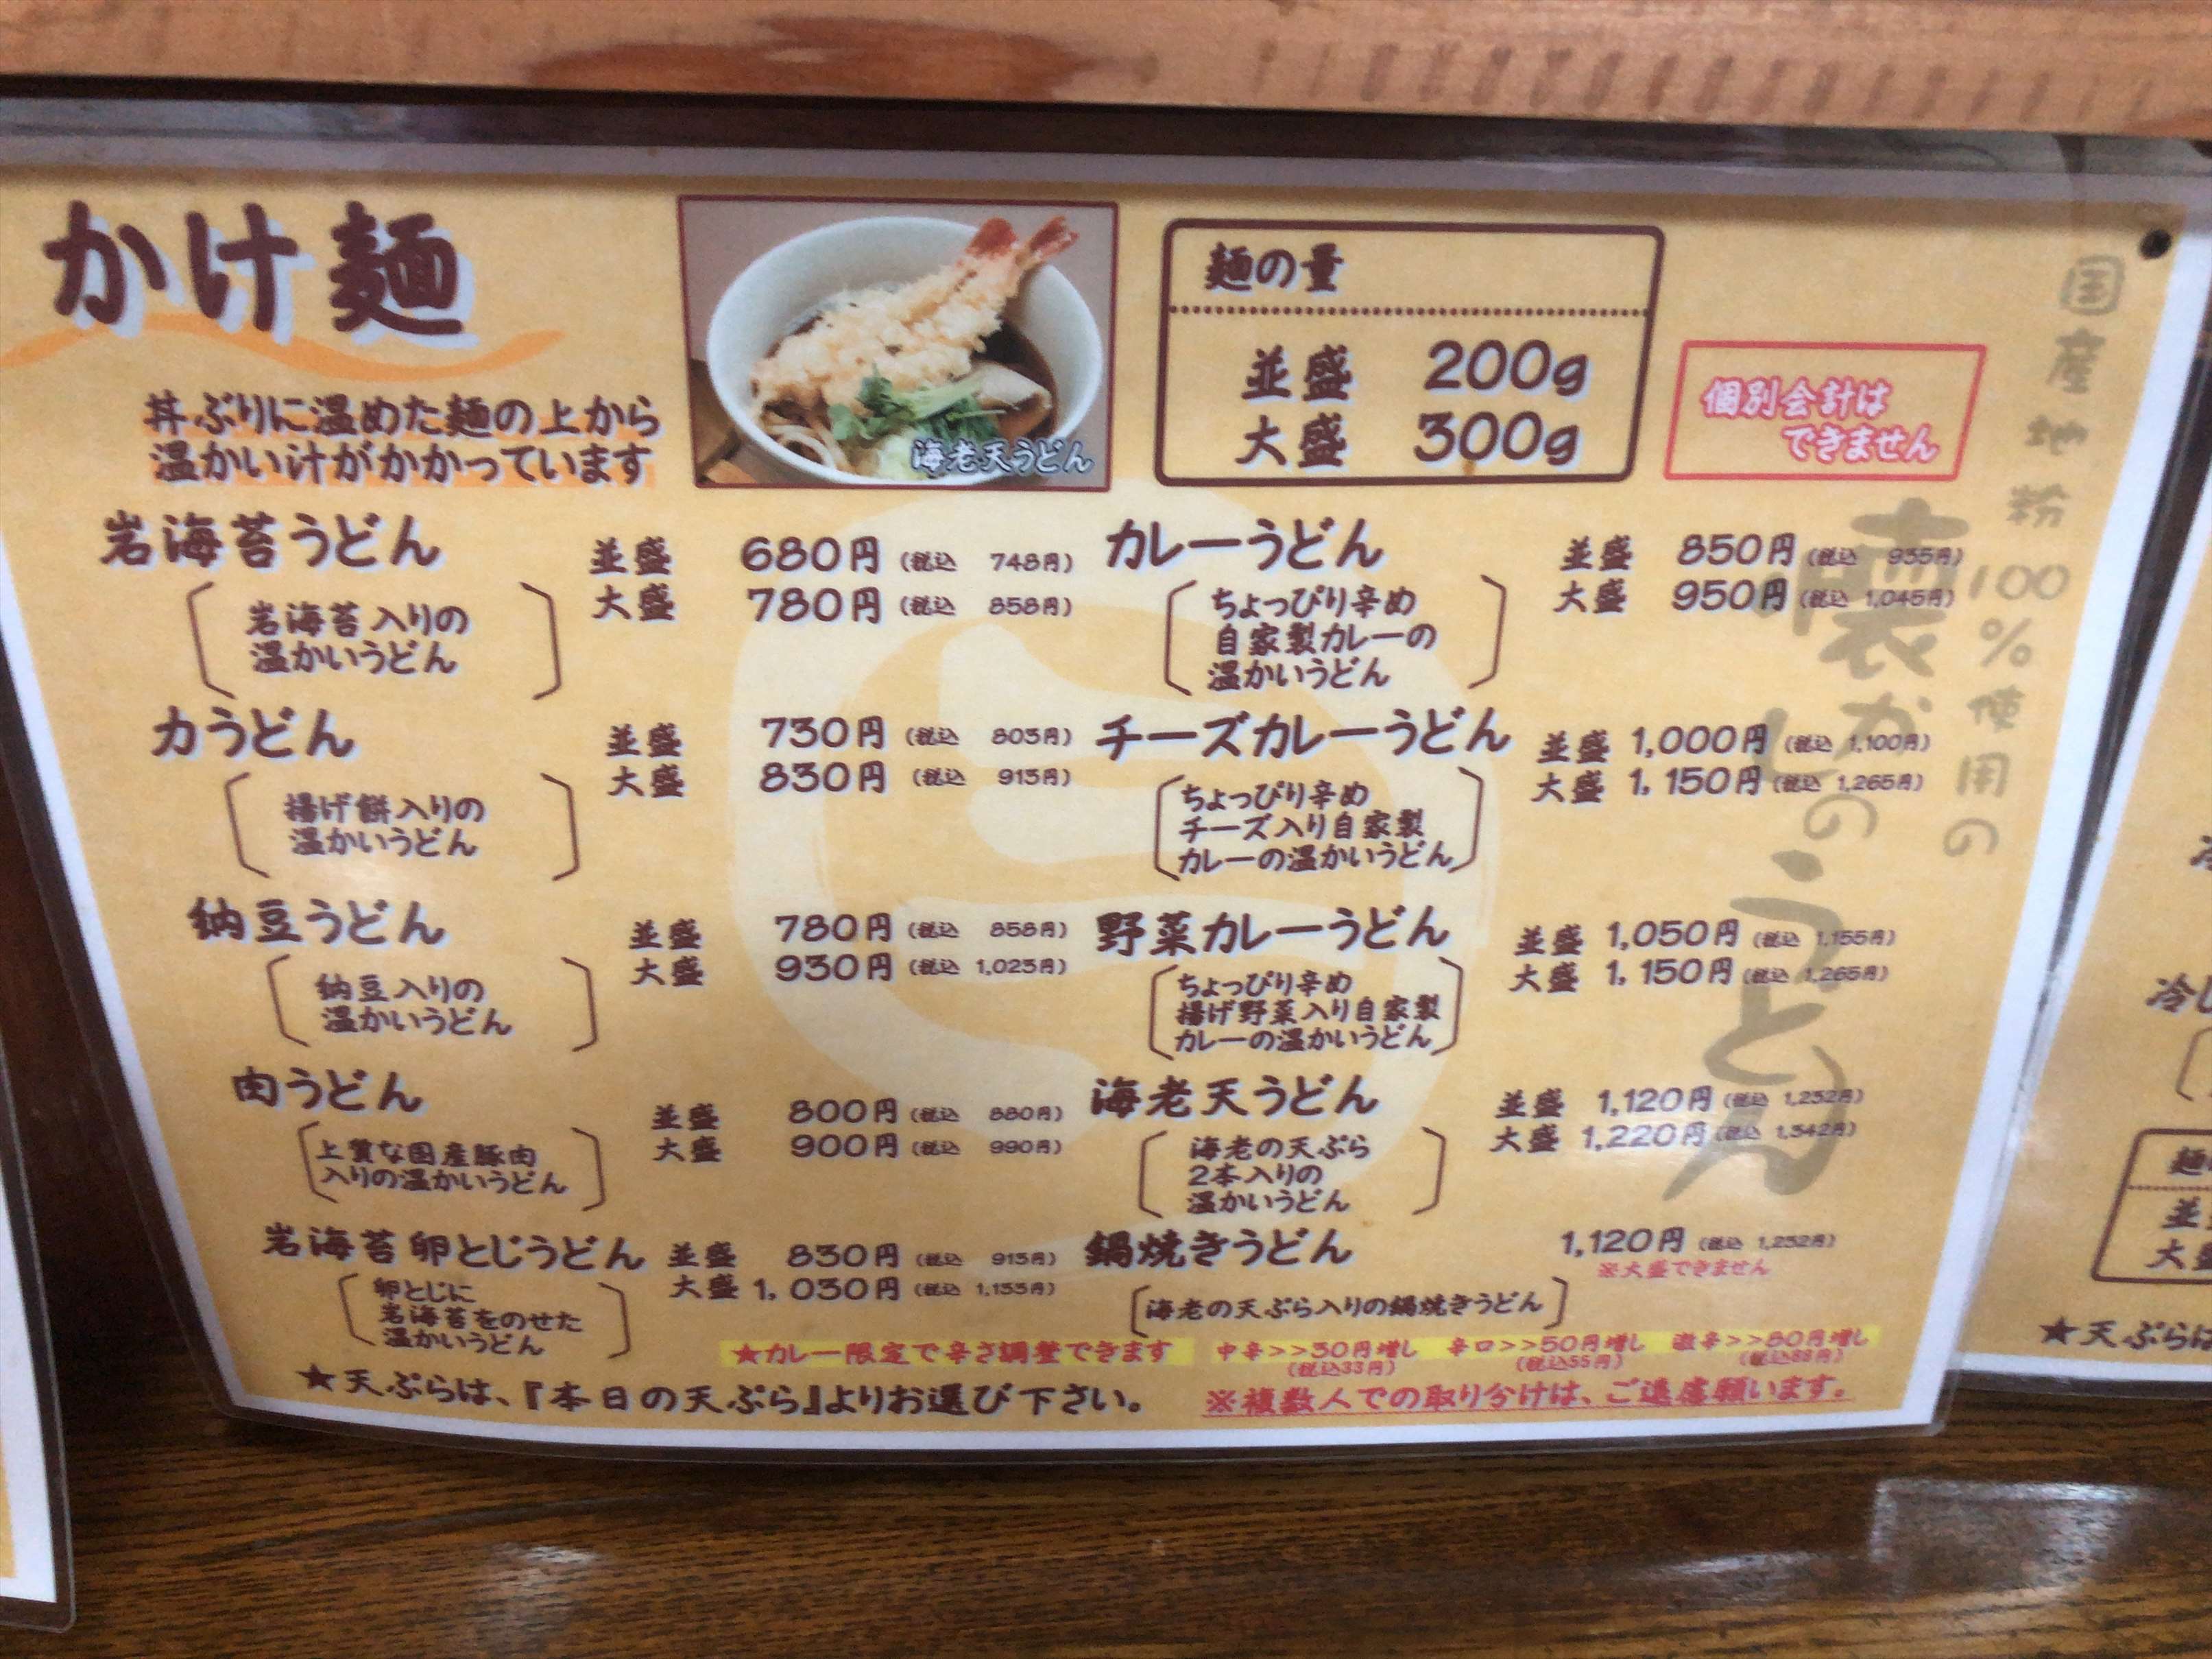 かけ麺
丼ぶりに温めた麺の上から
温かい汁がかかっています
海老天うどん
麺の量
並盛 200g
大盛 300g
個別会計は
できません
国産地粉100%使用の
懐かしのうどん
岩海苔うどん 並盛 680円(税込 748円)
大盛 780円(税込 858円)
岩海苔入りの
温かいうどん
力うどん 並盛 730円(税込 803円)
大盛 830円(税込 913円)
揚げ餅入りの
温かいうどん
納豆うどん 並盛 780円(税込 858円)
大盛 930円(税込 1,023円)
納豆入りの
温かいうどん
肉うどん 並盛 800円(税込 880円)
大盛 900円(税込 990円)
上質な国産豚肉
入りの温かいうどん
岩海苔卵とじうどん 並盛 830円(税込 913円)
大盛 1,030円(税込 1,133円)
卵とじに
岩海苔をのせた
温かいうどん
カレーうどん 並盛 850円(税込 935円)
大盛 950円(税込 1,045円)
ちょっぴり辛め
自家製カレーの
温かいうどん
チーズカレーうどん 並盛 1,000円(税込 1,100円)
大盛 1,150円(税込 1,265円)
ちょっぴり辛め
チーズ入り自家製
カレーの温かいうどん
野菜カレーうどん 並盛 1,050円(税込 1,155円)
大盛 1,150円(税込 1,265円)
ちょっぴり辛め
揚げ野菜入り自家製
カレーの温かいうどん
海老天うどん 並盛 1,120円(税込 1,232円)
大盛 1,220円(税込 1,342円)
海老の天ぷら
2本入りの
温かいうどん
鍋焼きうどん 1,120円(税込 1,232円)
※大盛できません
海老の天ぷら入りの鍋焼きうどん
★カレー限定で辛さ調整できます 中辛>>30円増し 辛口>>50円増し 激辛>>80円増し
(税込33円) (税込55円) (税込88円)
★天ぷらは、『本日の天ぷら』よりお選び下さい。
※複数人での取り分けは、ご遠慮願います。
冷
麺
並
大盛
★天ぷらは